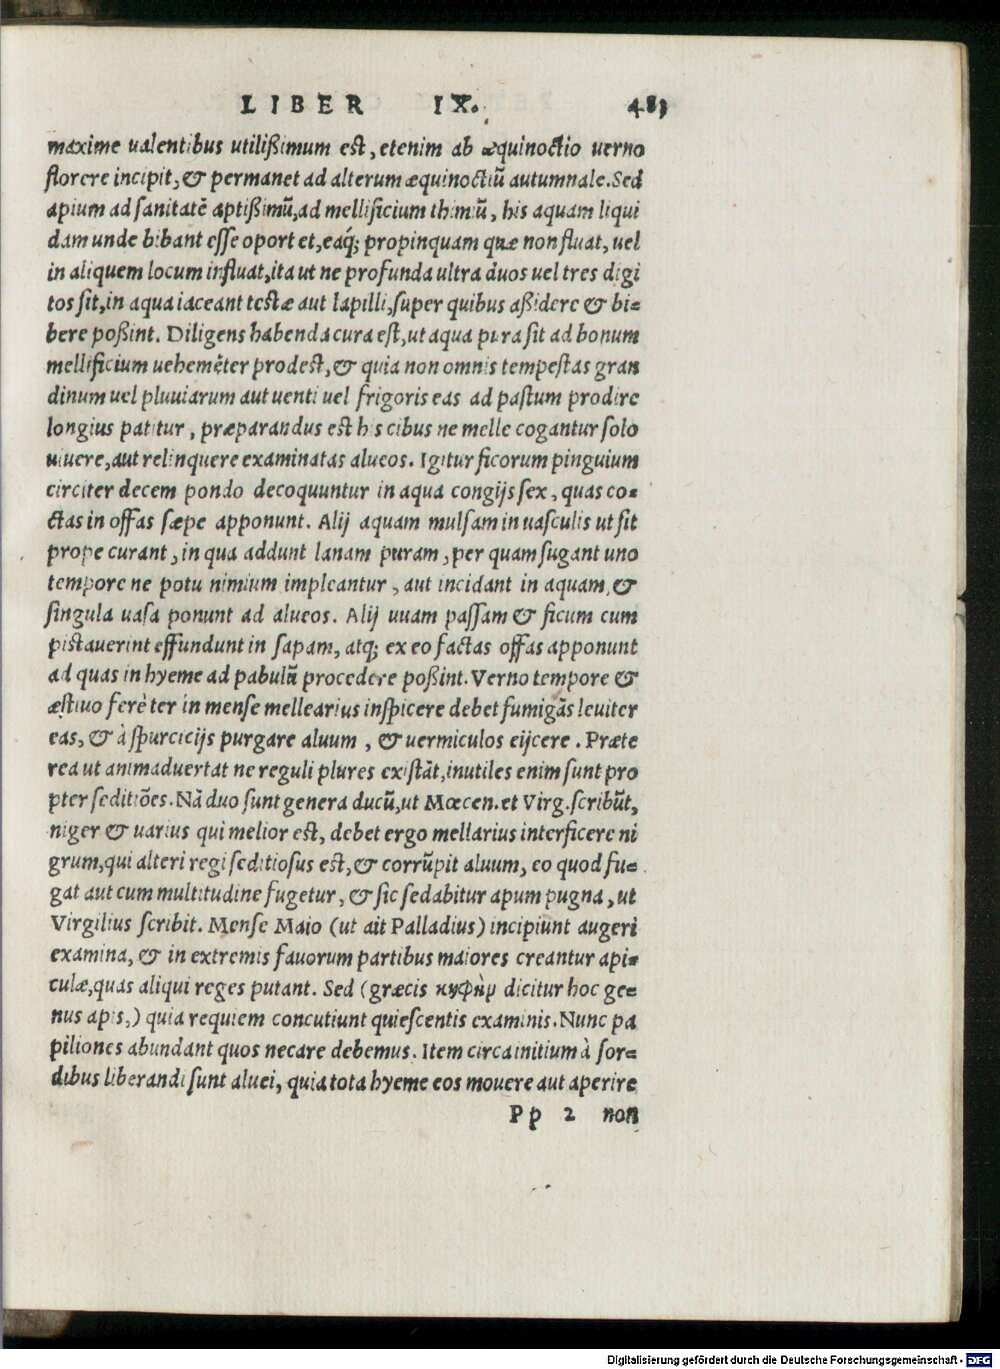 LIBER IX. 483
maxime ualentibus utilißimum est, etenim ab æquinoctio uerno
florere incipit, & permanet ad alterum æquinoctiũ autumnale. Sed
apium ad sanitatẽ aptißimũ, ad mellificium thimũ, his aquam liqui
dam unde bibant esse oportet, eaq́; propinquam quæ non fluat, uel
in aliquem locum influat, ita ut ne profunda ultra duos uel tres digi
tos sit, in aqua iaceant testæ aut lapilli, super quibus aßidere & bi=
bere poßint. Diligens habenda cura est, ut aqua pura sit ad bonum
mellificium uehemẽter prodest, & quia non omnis tempestas gran
dinum uel pluuiarum aut uenti uel frigoris eas ad pastum prodire
longius patitur, præparandus est his cibus ne melle cogantur solo
uiuere, aut relinquere examinatas alueos. Igitur ficorum pinguium
circiter decem pondo decoquuntur in aqua congijs sex, quas co=
ctas in offas sæpe apponunt. Alij aquam mulsam in uasculis ut sit
prope curant, in qua addunt lanam puram, per quam sugant uno
tempore ne potu nimium impleantur, aut incidant in aquam, &
singula uasa ponunt ad alueos. Alij uuam passam & ficum cum
pistauerint effundunt in sapam, atq; ex eo factas offas apponunt
ad quas in hyeme ad pabulũ procedere poßint. Verno tempore &
æstiuo ferè ter in mense mellearius inspicere debet fumigãs leuiter
eas, & à spurcicijs purgare aluum, & uermiculos eijcere. Præte
rea ut animaduertat ne reguli plures existãt, inutiles enim sunt pro
pter seditiões. Nã duo sunt genera ducũ, ut Mœcen. et Virg. scribũt,
niger & uarius qui melior est, debet ergo mellarius interficere ni
grum, qui alteri regi seditiosus est, & corrũpit aluum, eo quod fu=
gat aut cum multitudine fugetur, & sic sedabitur apum pugna, ut
Virgilius scribit. Mense Maio (ut ait Palladius) incipiunt augeri
examina, & in extremis fauorum partibus maiores creantur api=
culæ, quas aliqui reges putant. Sed (græcis κηφὴν dicitur hoc ge=
nus apis,) quia requiem concutiunt quiescentis examinis. Nunc pa
piliones abundant quos necare debemus. Item circa initium à sor=
dibus liberandi sunt aluei, quia tota hyeme eos mouere aut aperire
Pp 2 non
Digitalisierung gefördert durch die Deutsche Forschungsgemeinschaft - DFG